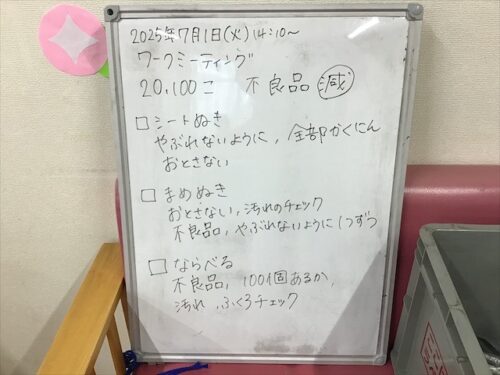 2025年7月1日(火)14:10〜
ワークミーティング
20,100こ 不良品 減
□シートぬき
やぶれないように、全部かくにん
おとさない
□まめぬき
おとさない、汚れのチェック
不良品、やぶれないように1つずつ
□ならべる
不良品、100個あるか、
汚れ、ふくろチェック